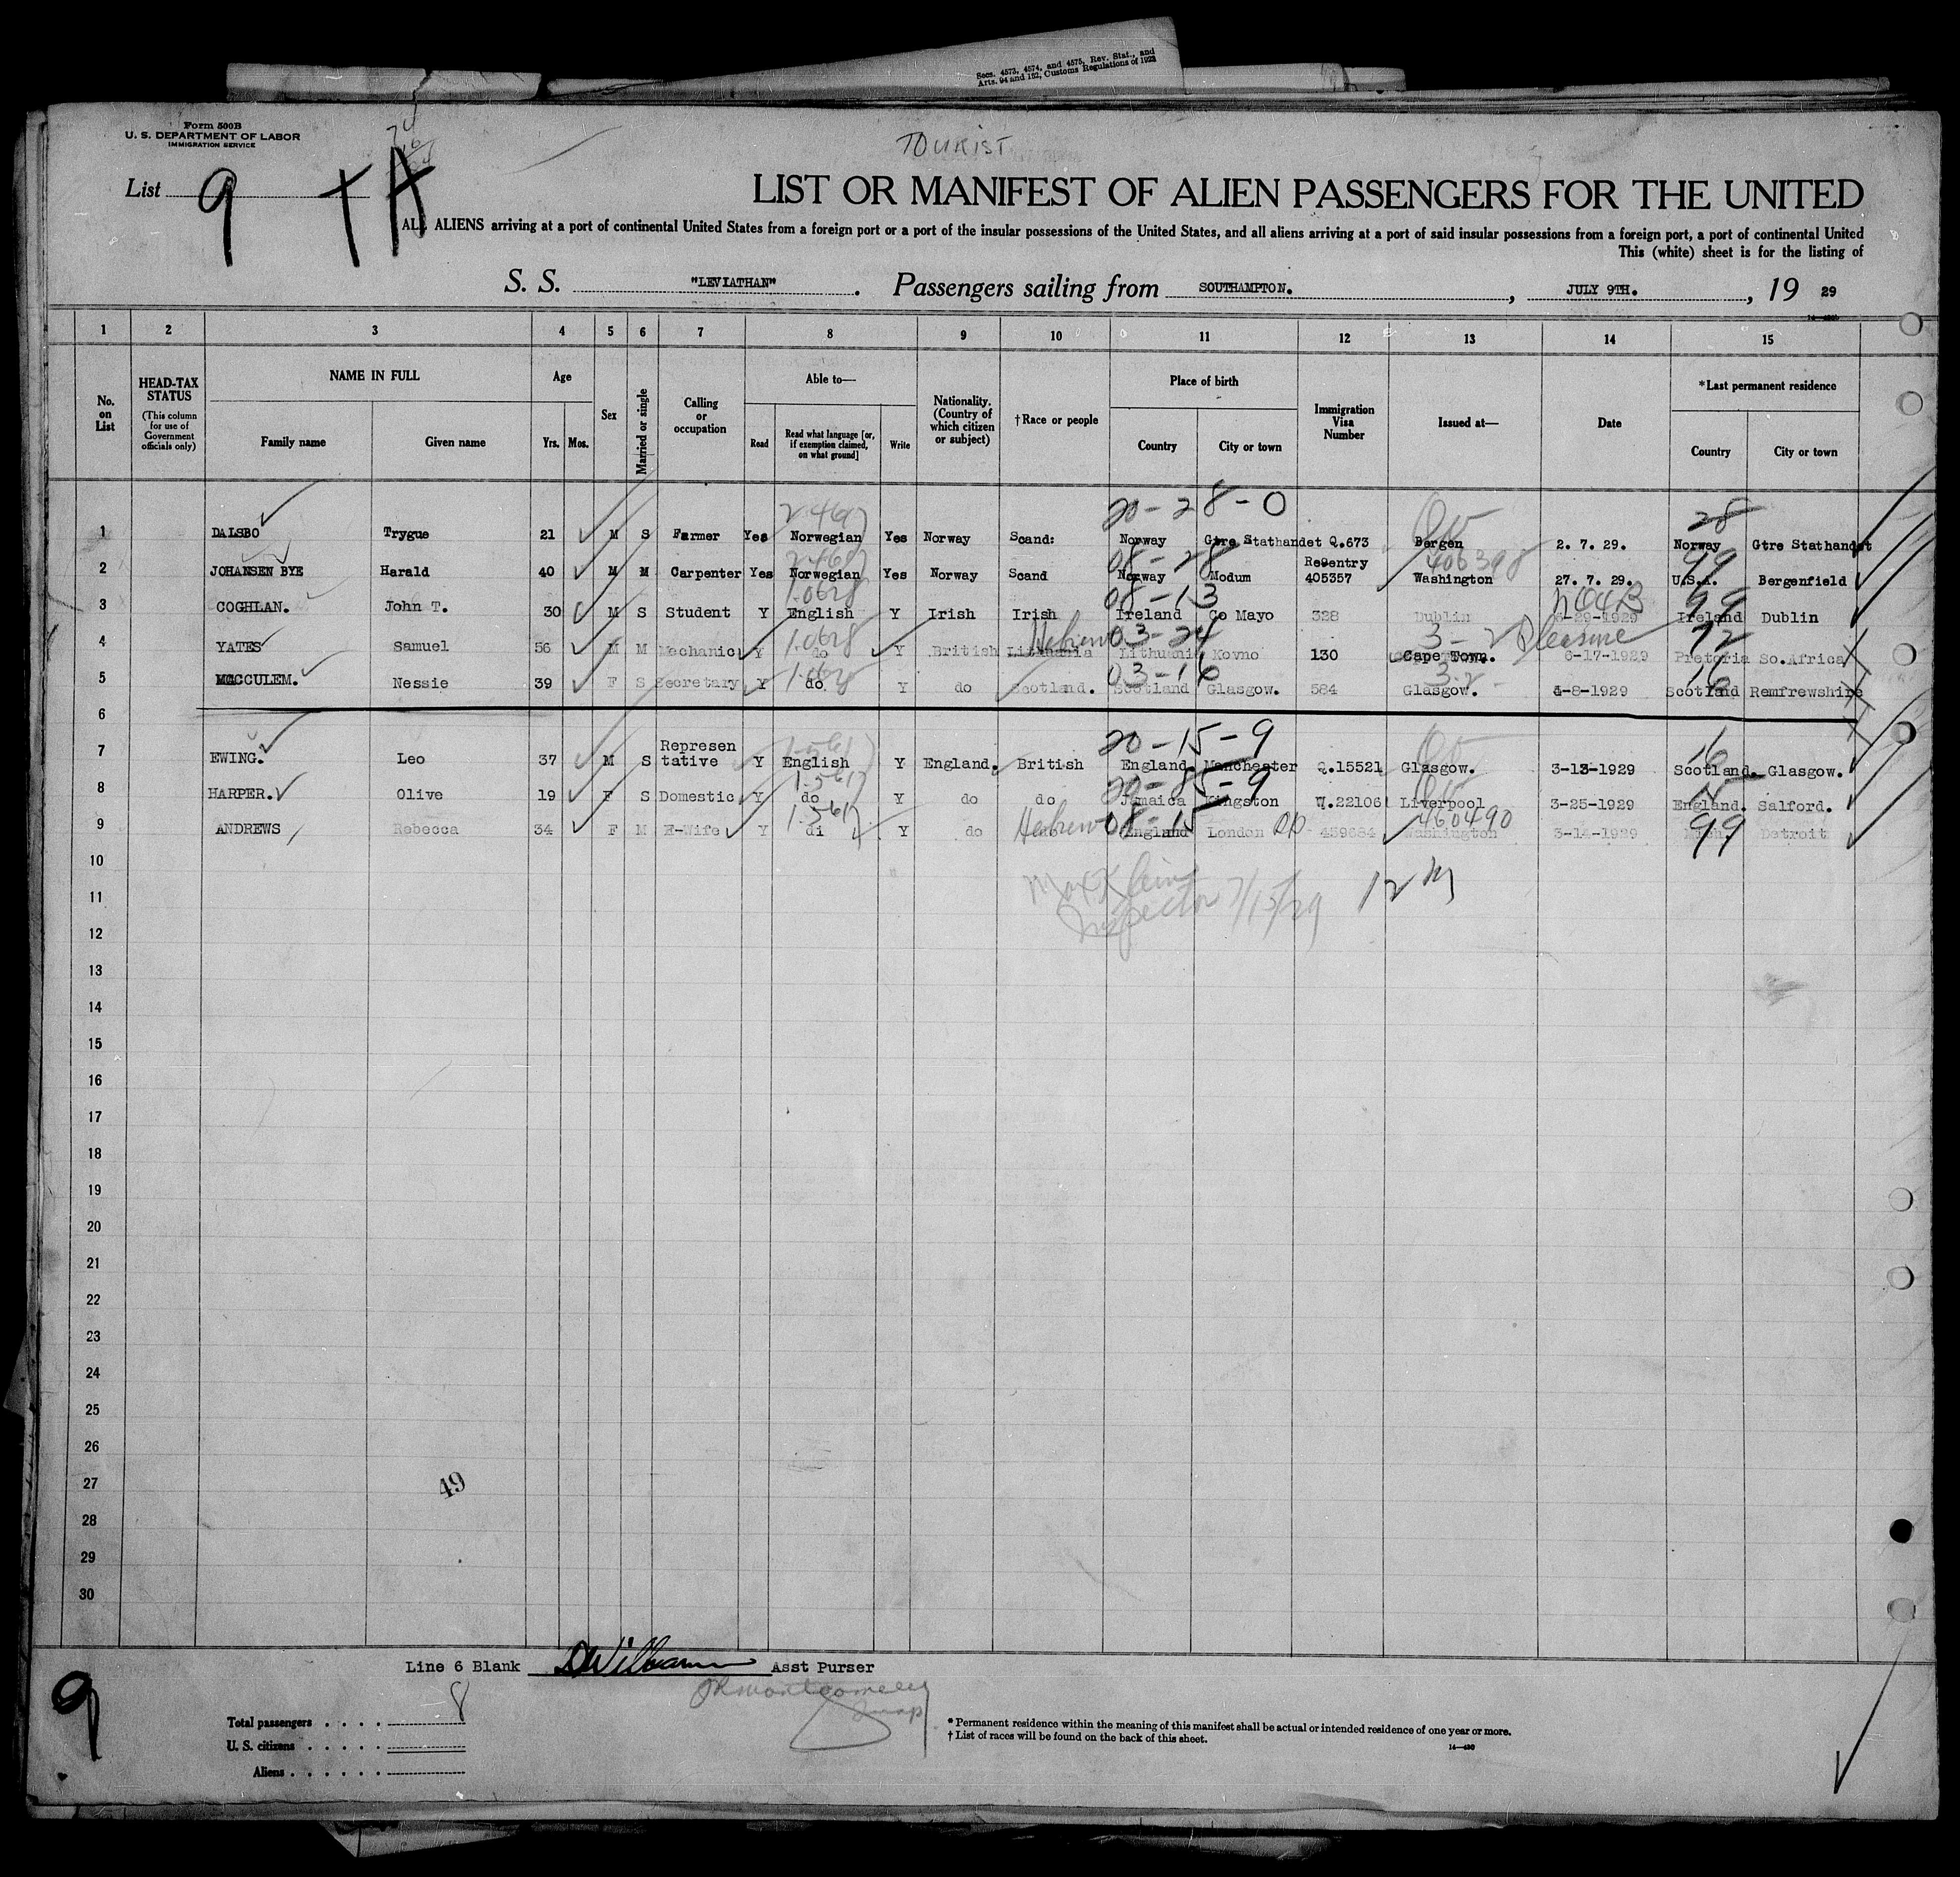 Secs. 4573, 4574, and 4575, Rev. Stat., and
Arts. 94 and 152, Customs Regulations of 1923
Form 500B
U. S. DEPARTMENT OF LABOR
IMMIGRATION SERVICE
TOURIST
List 9 A
LIST OR MANIFEST OF ALIEN PASSENGERS FOR THE UNITED
ALL ALIENS arriving at a port of continental United States from a foreign port or a port of the insular possessions of the United States, and all aliens arriving at a port of said insular possessions from a foreign port, a port of continental United
This (white) sheet is for the listing of
S. S. "LEVIATHAN". Passengers sailing from SOUTHAMPTON., JULY 9TH., 19 29
1 2 3 4 5 6 7 8 9 10 11 12 13 14 15
No. on List
HEAD-TAX STATUS
(This column for use of Government officials only)
NAME IN FULL
Family name Given name
Age
Yrs. Mos.
Sex
Married or single
Calling or occupation
Able to—
Read
Read what language [or, if exemption claimed, on what ground]
Write
Nationality. (Country of which citizen or subject)
†Race or people
Place of birth
Country City or town
Immigration Visa Number
Issued at—
Date
*Last permanent residence
Country City or town
20-28-0 28
1 DALSBO Trygue 21 M S Farmer Yes Norwegian Yes Norway Scand: Norway Gtre Stathandet Q.673 Bergen 2. 7. 29. Norway Gtre Stathandet
08-28 406398 99
2 JOHANSEN BYE Harald 40 M M Carpenter Yes Norwegian Yes Norway Scand Norway Modum Reentry 405357 Washington 27. 7. 29. U.S.A. Bergenfield
1.0628 08-13 99
3 COGHLAN. John T. 30 M S Student Y English Y Irish Irish Ireland Co Mayo 328 Dublin -29-1929 Ireland Dublin
1.0628 Hebrew 03-24 3-2 Pleasure 72
4 YATES Samuel 56 M M Mechanic Y do Y British Lithuania Lithuania Kovno 130 Cape Town. 6-17-1929 Pretoria So.Africa
1.0628 03-16 3.2 16
5 MACCULEM. Nessie 39 F S Secretary Y do Y do Scotland. Scotland Glasgow. 584 Glasgow. 4-8-1929 Scotland Remfrewshire
6
20-15-9 16
7 EWING. Leo 37 M S Represen tative Y English Y England. British England Manchester Q.15521 Glasgow. 3-13-1929 Scotland. Glasgow.
1-5617 20-85-9 15
8 HARPER. Olive 19 F S Domestic Y do Y do do Jamaica Kingston Q.22106 Liverpool 3-25-1929 England. Salford.
1.5617 Hebrew 08-15 460490 99
9 ANDREWS Rebecca 34 F M H-Wife Y di Y do England London 459684 Washington 3-14-1929 Mich. Detroit
10
11
Inspector 7/15/29
12
13
14
15
16
17
18
19
20
21
22
23
24
25
26
27
49
28
29
30
Line 6 Blank DWilliams Asst Purser
9
Total passengers . . . . 8
U. S. citizens . . . . .
Aliens . . . . . .
JRMontgomery
Insp
* Permanent residence within the meaning of this manifest shall be actual or intended residence of one year or more.
† List of races will be found on the back of this sheet.
14—430